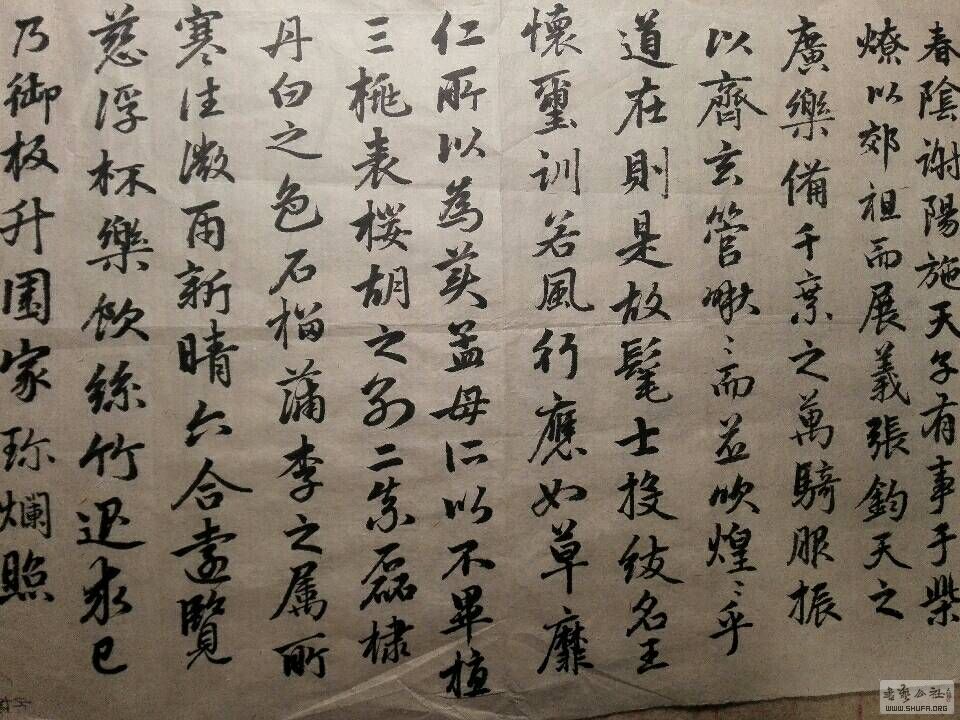 春陰謝陽施天子有事于柴
燎以郊祖而展義張鈞天之
廣樂備千乘之萬騎服振
以齊玄管啾〻而並吹煌〻乎
道在則是故髦士投紱名王
懷璽訓若風行應如草靡
仁所以為美孟母所以不畢植
三桃表櫻胡之別二柰磊棣
丹白之色石榴蒲李之屬所
寒往微雨新晴六合遠覽
慈浮杯樂飲絲竹退求己
乃御板升園家珍爛照
書藝公社
WWW.SHUFA.ORG